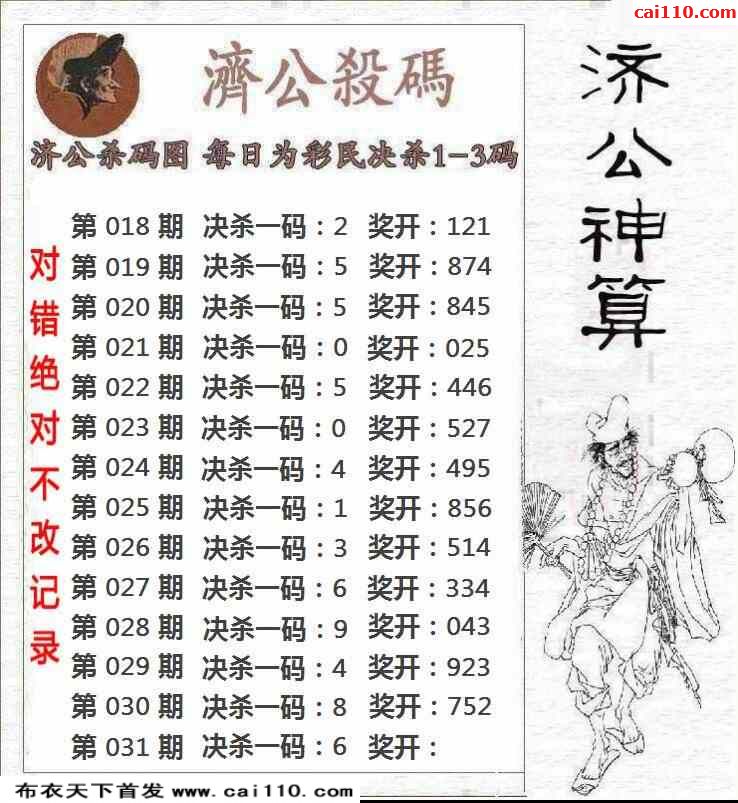 cai110.com
濟公殺碼
济公杀码图 每日为彩民决杀1-3码
对错绝对不改记录
第 018 期 决杀一码：2 奖开：121
第 019 期 决杀一码：5 奖开：874
第 020 期 决杀一码：5 奖开：845
第 021 期 决杀一码：0 奖开：025
第 022 期 决杀一码：5 奖开：446
第 023 期 决杀一码：0 奖开：527
第 024 期 决杀一码：4 奖开：495
第 025 期 决杀一码：1 奖开：856
第 026 期 决杀一码：3 奖开：514
第 027 期 决杀一码：6 奖开：334
第 028 期 决杀一码：9 奖开：043
第 029 期 决杀一码：4 奖开：923
第 030 期 决杀一码：8 奖开：752
第 031 期 决杀一码：6 奖开：
济公神算
布衣天下首发 www.cai110.com